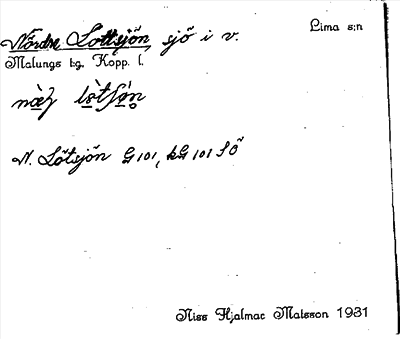 Nördre Lottsjön sjö i v. Lima s:n
Malungs tg, Kopp. l.
N. Lötsjön G 101, kG 101 SÖ
Niss Hjalmar Matsson 1931